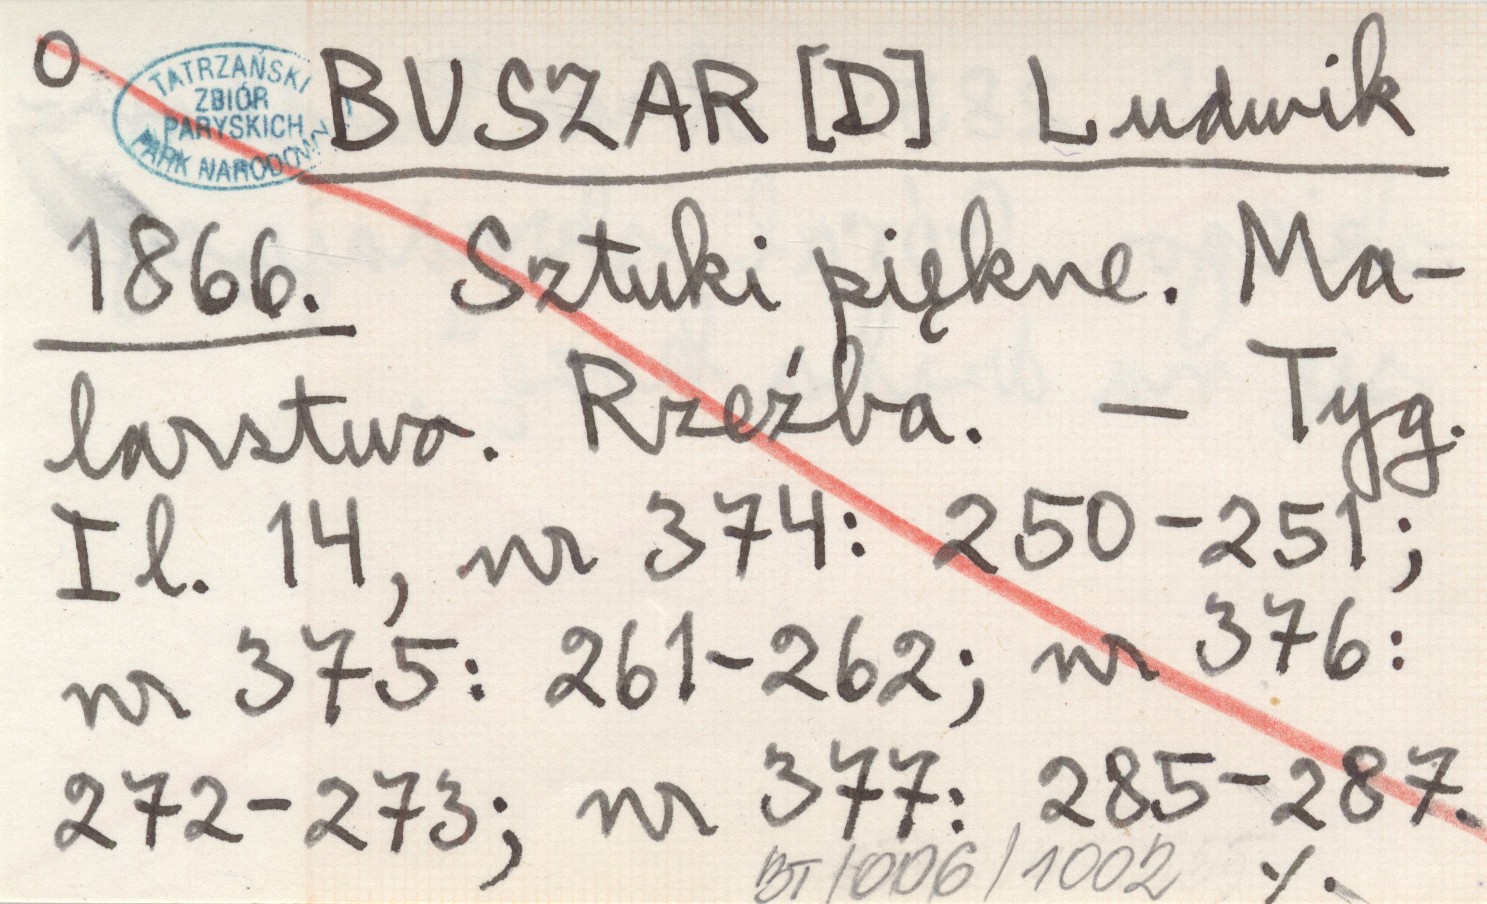 O
TATRZAŃSKI
ZBIÓR
PARYSKICH
PARK NARODOWY
BUSZAR [D] Ludwik
1866. Sztuki piękne. Ma-
larstwo. Rzeźba. — Tyg.
Il. 14, nr 374: 250-251;
nr 375: 261-262; nr 376:
272-273; nr 377: 285-287.
BT/006/1002 ./.